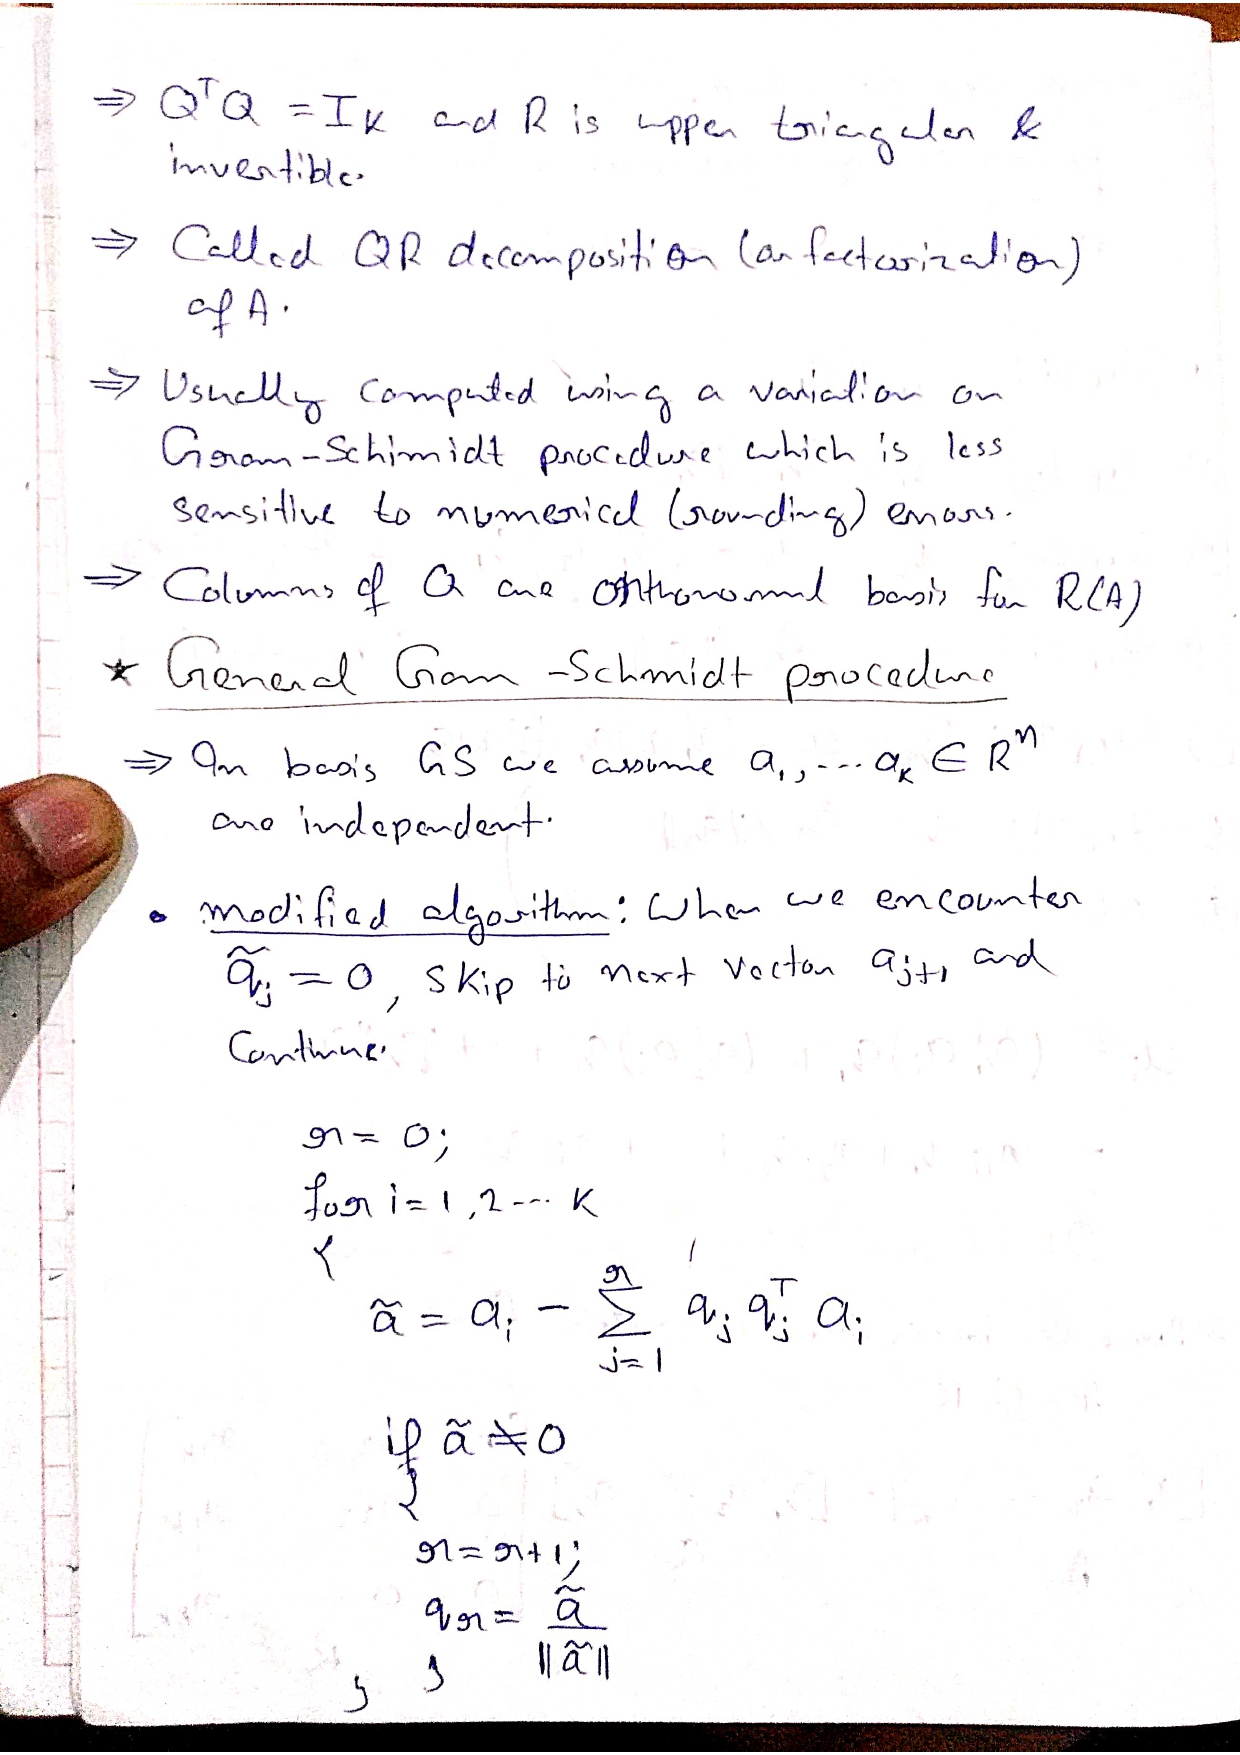 ⇒ QᵀQ = I_K and R is upper triangular &
invertible.
⇒ Called QR decomposition (or factorization)
of A.
⇒ Usually computed using a variation on
Gram-Schimidt procedure which is less
sensitive to numerical (rounding) errors.
⇒ Columns of Q are orthonormal basis for R(A)
★ General Gram-Schmidt procedure
⇒ In basis GS we assume a₁, --- a_K ∈ Rⁿ
are independent.
• modified algorithm: When we encounter
q̃_j = 0, skip to next vector a_{j+1} and
Continue.
r = 0;
for i = 1, 2 --- K
{
ã = a_i - Σ_{j=1}^{r} q_j q_jᵀ a_i
if ã ≠ 0
{
r = r+1;
q_r = ã / ||ã||
} }